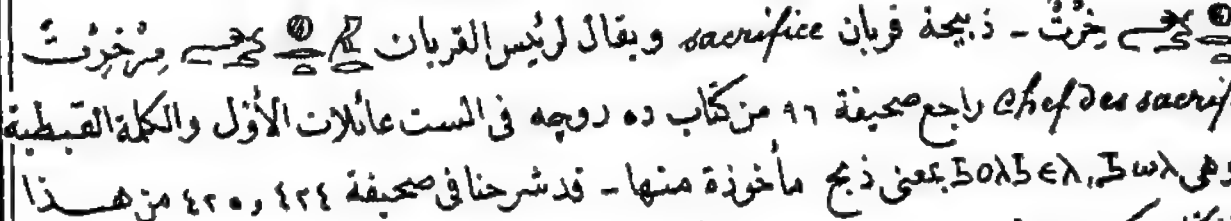 خِرْتْ - ذبيحة قربان sacrifice ويقال لرئيس القربان مِرْخِرْتْ
chef des sacrif راجع صحيفة ٩٦ من كتاب ده روچه فى الست عائلات الأوّل والكلمة القبطية
وهى ϧⲟⲗϧⲉⲗ, ϧⲱⲗ بمعنى ذبح مأخوذة منها - قد شرحنا فى صحيفة ٤٢٤ و ٤٢٥ من هـــذا